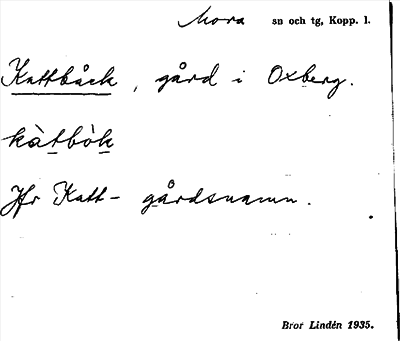 Mora sn och tg, Kopp. l.
Kattbåck, gård i Oxberg.
kàtbòk
Jfr Katt- gårdsnamn.
Bror Lindén 1935.